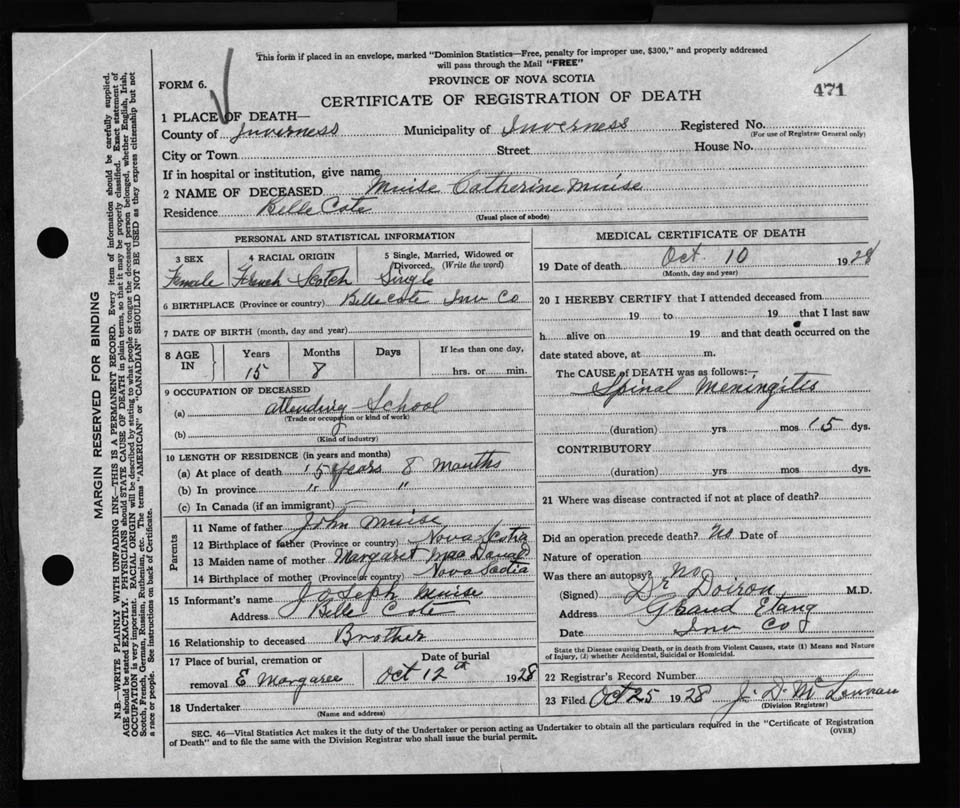 This form if placed in an envelope, marked "Dominion Statistics—Free, penalty for improper use, $300," and properly addressed
will pass through the Mail "FREE"
FORM 6.
PROVINCE OF NOVA SCOTIA
471
CERTIFICATE OF REGISTRATION OF DEATH
1 PLACE OF DEATH—
County of Inverness Municipality of Inverness Registered No.
(For use of Registrar General only)
City or Town Street House No.
If in hospital or institution, give name
2 NAME OF DECEASED Muise Catherine Muise
Residence Belle Cote
(Usual place of abode)
PERSONAL AND STATISTICAL INFORMATION
3 SEX 4 RACIAL ORIGIN 5 Single, Married, Widowed or
Divorced. (Write the word)
Female French Scotch Single
6 BIRTHPLACE (Province or country) Belle cote Inv Co
7 DATE OF BIRTH (month, day and year)
8 AGE IN Years Months Days If less than one day,
15 8 hrs. or min.
9 OCCUPATION OF DECEASED
(a) attending School
(Trade or occupation or kind of work)
(b)
(Kind of industry)
10 LENGTH OF RESIDENCE (in years and months)
(a) At place of death 15 years 8 months
(b) In province " "
(c) In Canada (if an immigrant) —
Parents
11 Name of father John Muise
12 Birthplace of father (Province or country) Nova Scotia
13 Maiden name of mother Margaret
14 Birthplace of mother (Province or country) Nova Scotia
15 Informant's name Joseph Muise
Address Belle Cote
16 Relationship to deceased Brother
17 Place of burial, cremation or Date of burial
removal E Margaree Oct 12th 1928
18 Undertaker
(Name and address)
MEDICAL CERTIFICATE OF DEATH
19 Date of death Oct 10 1928
(Month, day and year)
20 I HEREBY CERTIFY that I attended deceased from
19 to 19 that I last saw
h alive on 19 and that death occurred on the
date stated above, at m.
The CAUSE of DEATH was as follows:
Spinal Meningites
(duration) yrs mos 15 dys.
CONTRIBUTORY
(duration) yrs mos dys.
21 Where was disease contracted if not at place of death?
Did an operation precede death? No Date of
Nature of operation
Was there an autopsy? No
(Signed) Doiron M.D.
Address Grand Etang
Date Inv Co
State the Disease causing Death, or in death from Violent Causes, state (1) Means and Nature
of Injury, (2) whether Accidental, Suicidal or Homicidal.
22 Registrar's Record Number
23 Filed Oct 25 1928 J. D. McLennan
(Division Registrar)
SEC. 46—Vital Statistics Act makes it the duty of the Undertaker or person acting as Undertaker to obtain all the particulars required in the "Certificate of Registration
of Death" and to file the same with the Division Registrar who shall issue the burial permit.
(OVER)
MARGIN RESERVED FOR BINDING
N.B.—WRITE PLAINLY WITH UNFADING INK—THIS IS A PERMANENT RECORD. Every item of information should be carefully supplied.
AGE should be stated EXACTLY. PHYSICIANS should STATE CAUSE OF DEATH in plain terms, so that it may be properly classified. Exact statement of
OCCUPATION is very important. RACIAL ORIGIN will be described by stating to what people or tongue the deceased person belonged, whether English, Irish,
Scotch, French, German, Russian, Ruthenian, etc. The terms "AMERICAN" or "CANADIAN" SHOULD NOT BE USED as they express citizenship but not
a race or people. See instructions on back of Certificate.